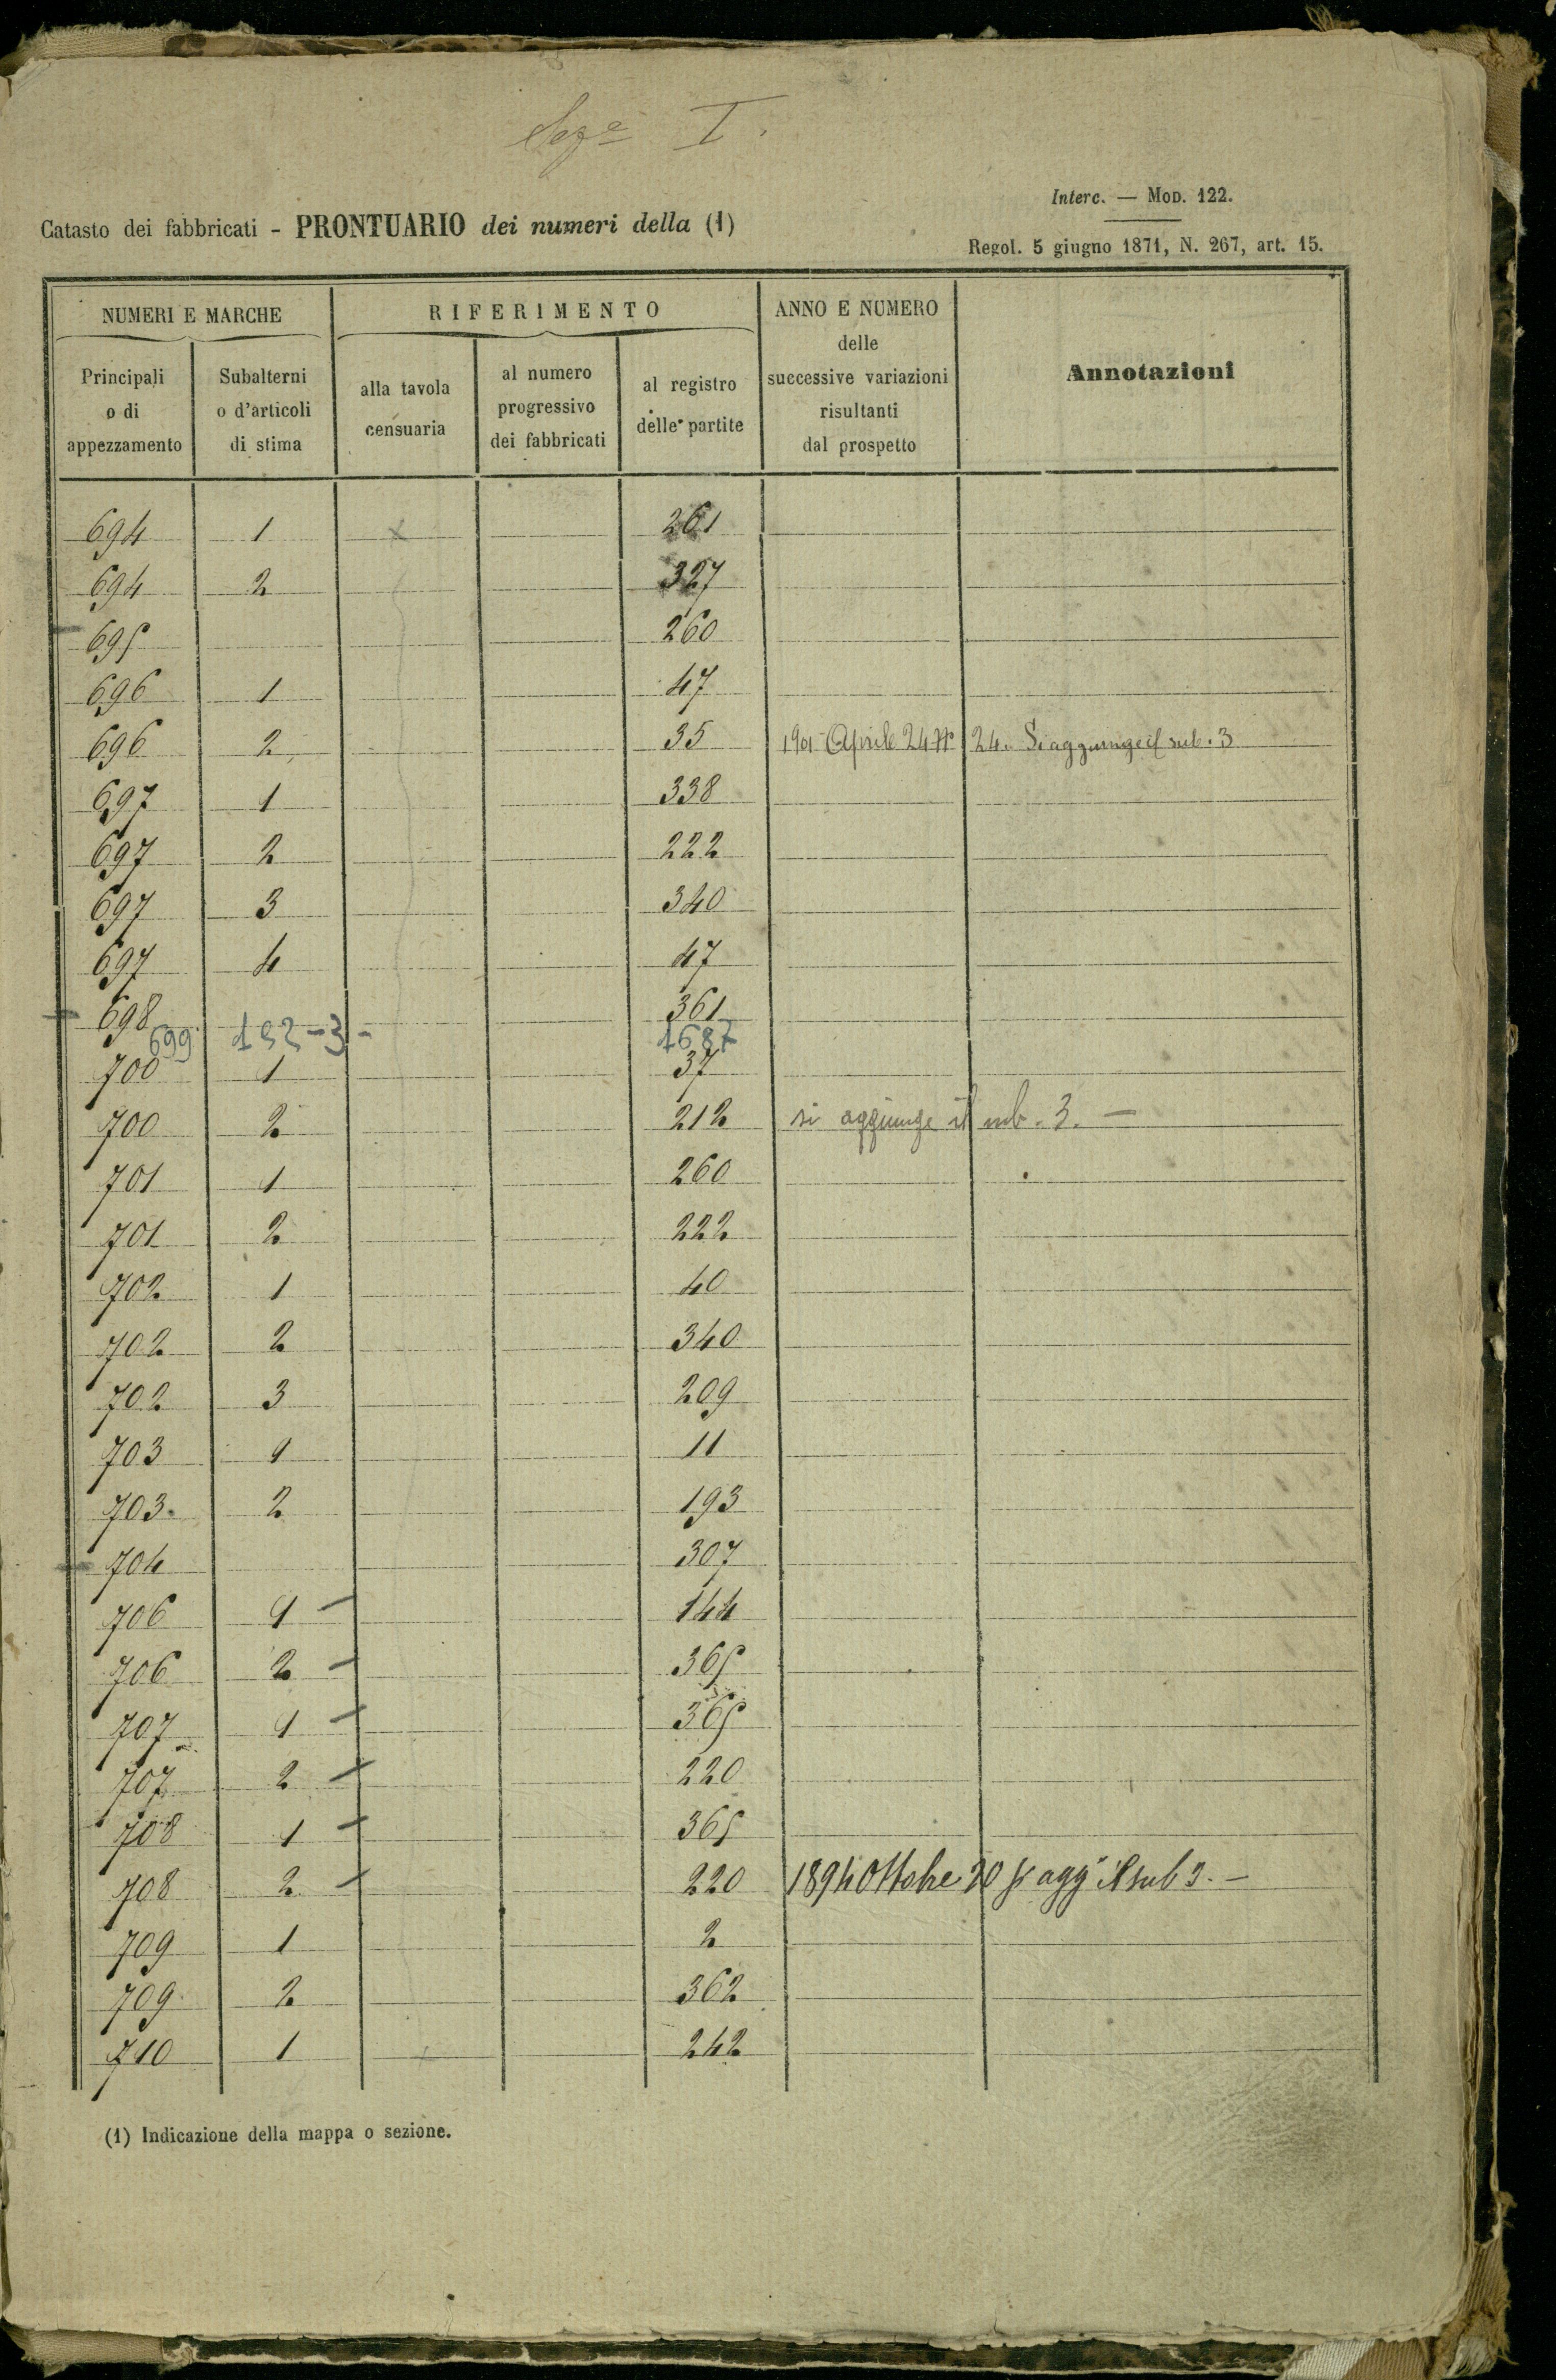 Seze I.
Interc. — Mod. 122.
Catasto dei fabbricati - PRONTUARIO dei numeri della (1)
Regol. 5 giugno 1871, N. 267, art. 15.
NUMERI E MARCHE
Principali o di appezzamento
Subalterni o d'articoli di stima
RIFERIMENTO
alla tavola censuaria
al numero progressivo dei fabbricati
al registro delle partite
ANNO E NUMERO delle successive variazioni risultanti dal prospetto
Annotazioni
694 1 x 261
694 2 327
695 260
696 1 47
696 2 35 1901 Aprile 24 24. Si aggiunge il sub. 3
697 1 338
697 2 222
697 3 340
697 4 47
698 361
699 1 2 - 3 - 1687
700 1 37
700 2 212 si aggiunge il sub. 3. —
701 1 260
701 2 222
702 1 40
702 2 340
702 3 209
703 1 11
703. 2 193
704 307
706 1 - 144
706 2 - 365
707 1 - 365
707 2 - 220
708 1 - 365
708 2 - 220 1894 Ottobre 20 si agg il sub 3. —
709 1 2
709 2 362
710 1 242
(1) Indicazione della mappa o sezione.